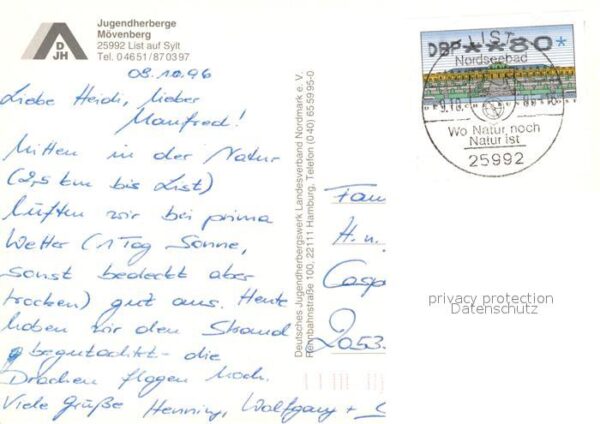 Jugendherberge
Mövenberg
25992 List auf Sylt
Tel. 04651/870397
DJH
09.10.96
Liebe Heidi, lieber
Manfred!
Mitten in der Natur
(2,5 km bis List)
lüften wir bei prima
Wetter (1 Tag Sonne,
sonst bedeckt aber
trocken) gut aus. Heute
haben wir den Strand
begutachtet - die
Drachen flogen hoch.
Viele Grüße Henning, Wolfgang +
Deutsches Jugendherbergswerk Landesverband Nordmark e. V.
Rennbahnstraße 100, 22111 Hamburg, Telefon (040) 655995-0
DBP**80*
LIST
Nordseebad
Wo Natur noch
Natur ist
25992
Fam
H. u.
2053
privacy protection
Datenschutz